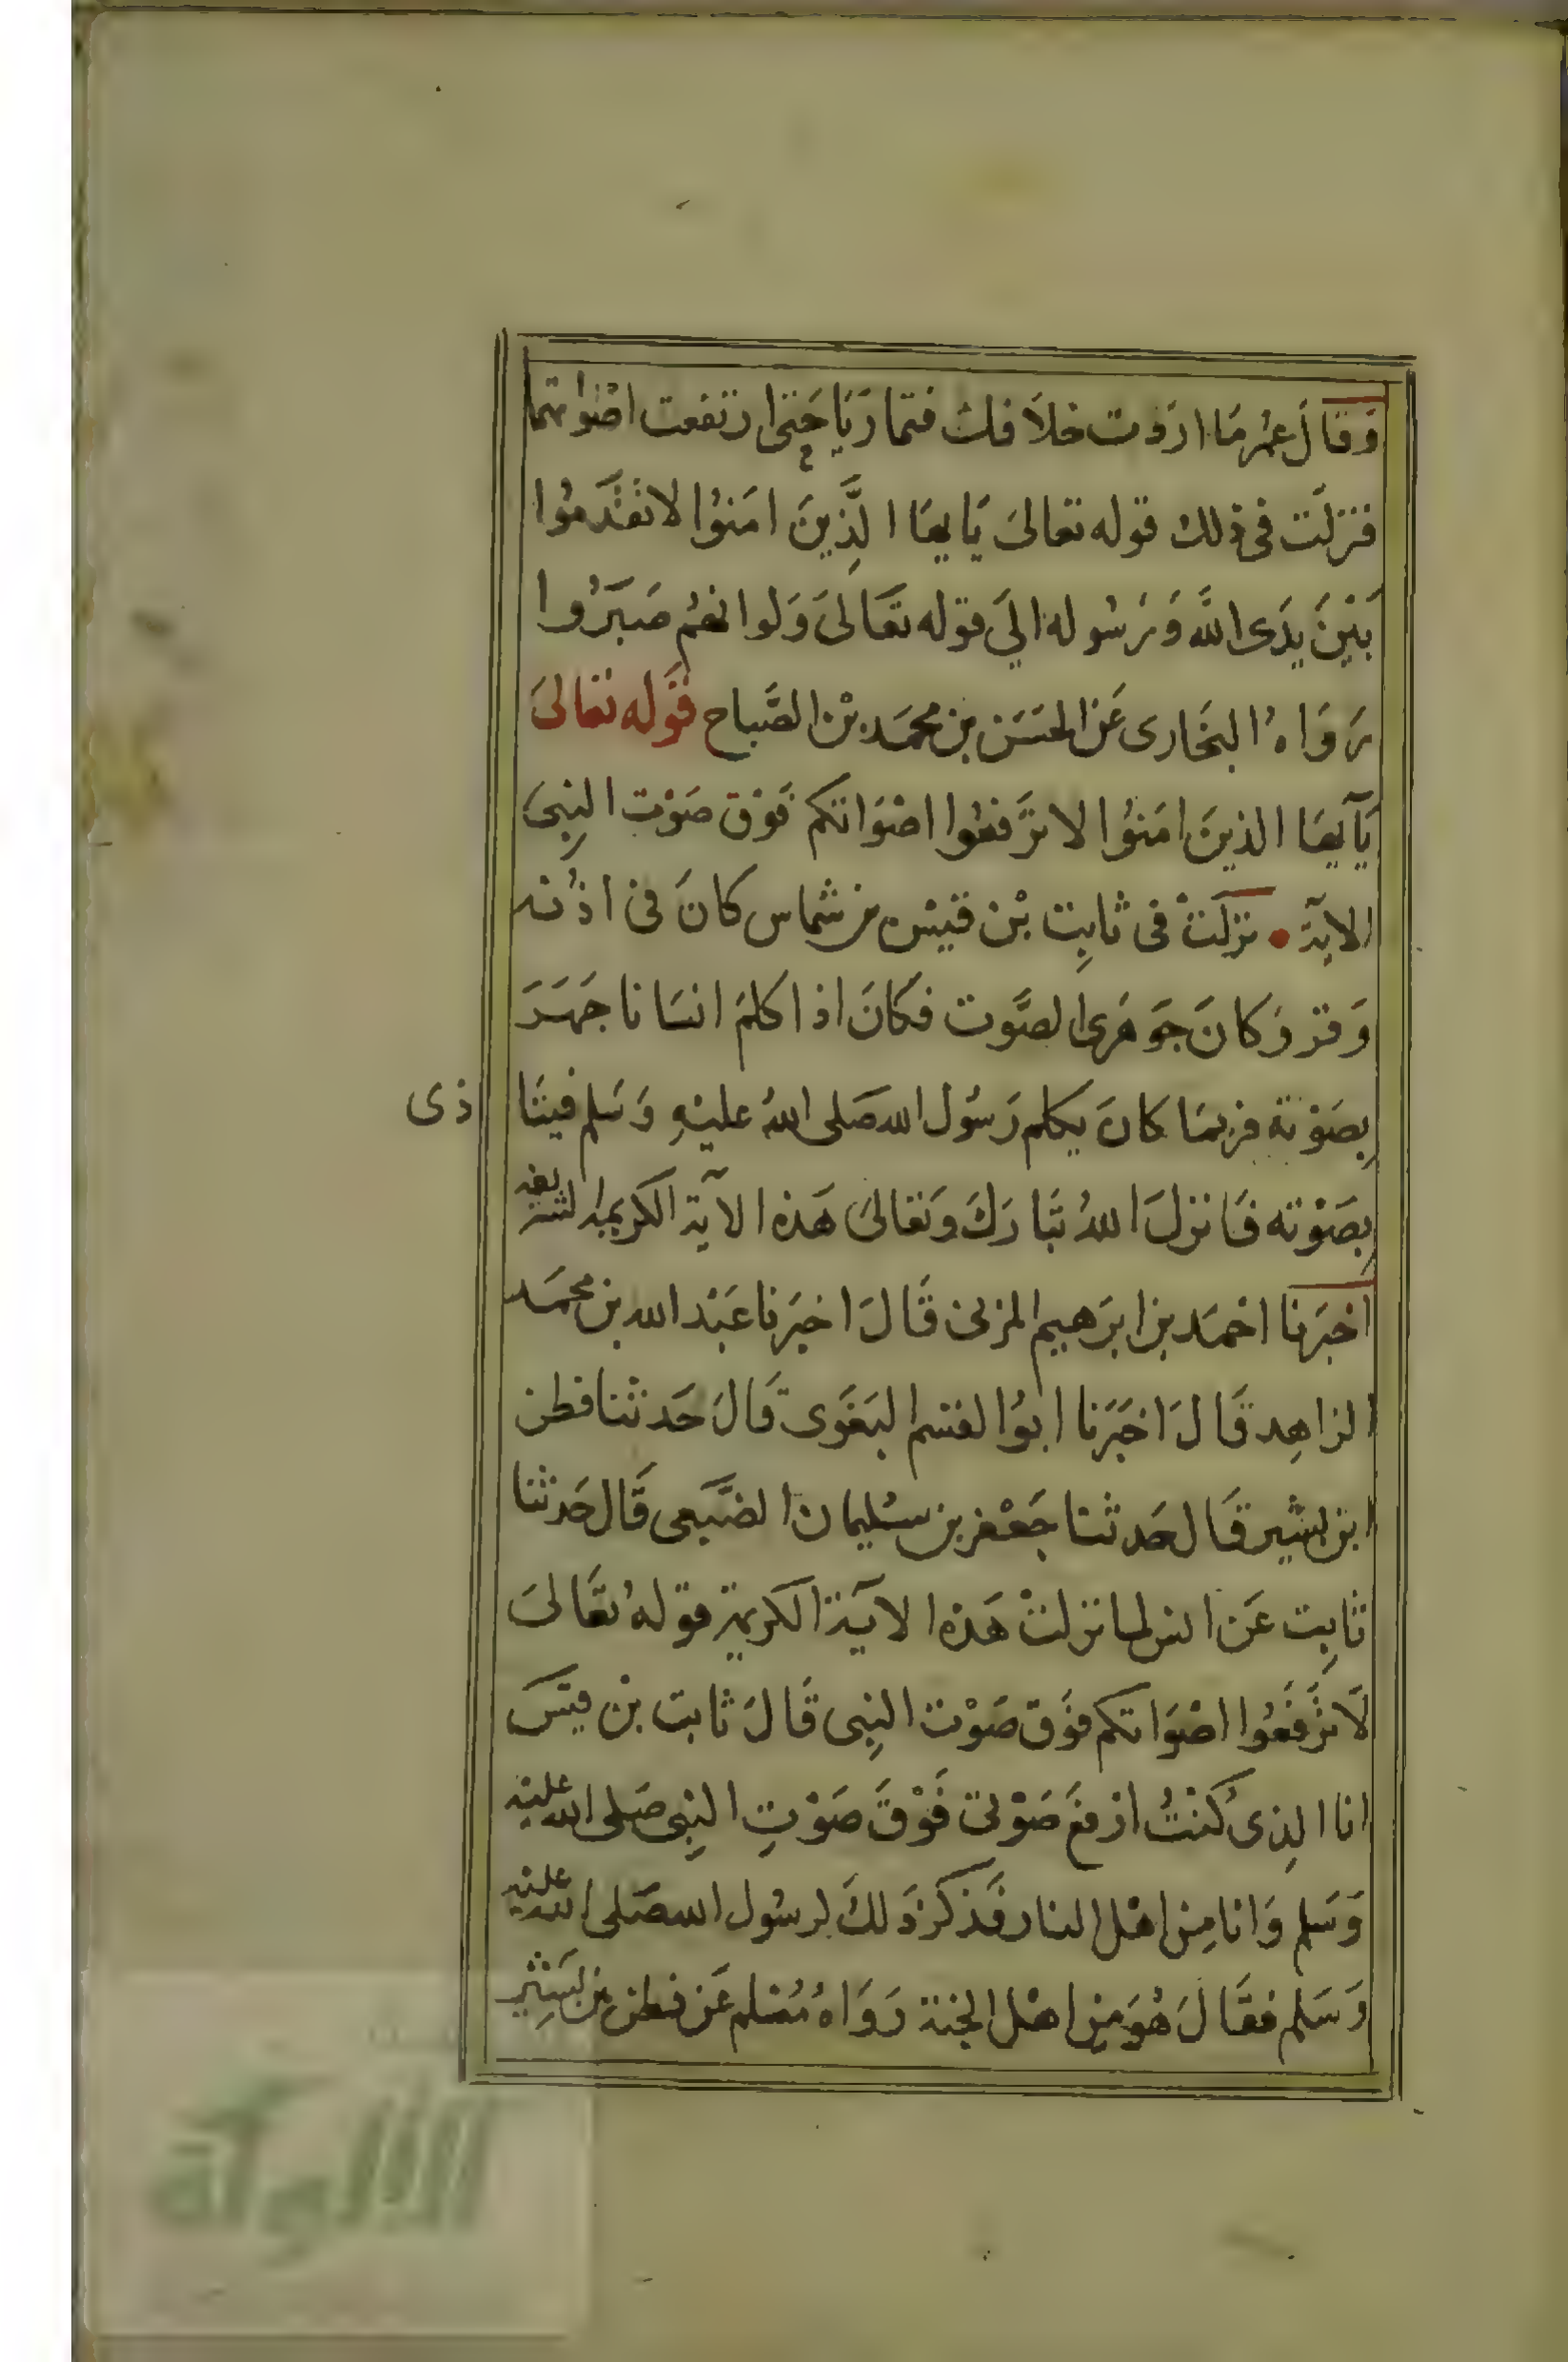 وَقَالَ عمُر مَا اردوت خلاَفك فتمارَيَا حَتى ارتفعت اصْواتهما
فنزلَت فى ذلك قوله تعالىَ يَايهَا الَّذِينَ امَنوُا لا تقَدَّموُا
بَيْنَ يدَى اللَّه وَرَسُوله الىَ قوله تعَالىَ وَلو انهمُ صَبَرُوا
رَوَاهُ البخَارى عَن الحسَن بن محمَد بْن الصَّباح قوَله تعَالىَ
يَآيهَا الذينَ امَنوُا لا ترَفعُوا اصْوَاتكم فَوْق صَوْت النبِى
الايَة • نزلَتْ فى ثابِت بْن قيسْ بن شماس كانَ فى اذُنه
وَقر وَكانَ جَوهَرى الصَّوت فكَانَ اذا كلمَ انسَانا جَهَرَ
بِصَوْته فربمَا كانَ يكلم رَسُول الله صَلى اللهُ عليْهِ وَسَلم فيتَا
ذى
بِصَوْته فَانزلَ اللهُ تبَاركَ وَتعَالىَ هَذه الآية الكريمة الشريفه
اخبَرنا احمَد بن ابرَهيم المزنى قَالَ اخبرَنا عَبْد الله بن محمَد
الزاهِد قَالَ اخبَرَنا ابوُ القسم البَغَوى قَالَ حَدثنا قطن
ابن بشير قَال حَدثنا جَعْفر بن سُليمان الضبَعى قَال حَدثنا
ثابِت عَن انس لما نزلتْ هَذه الايَة الكريمة قوله تعَالىَ
لاَ ترَفَعُوا اصْوَاتكم فَوْق صَوْت النبِى قَالَ ثابت بن قيَس
انا الذِى كُنْتُ ارفع صَوْتى فَوْقَ صَوْتِ النبِى صَلى الله عليْه
وَسَلم وَانا مِن اهْل النار فَذكرَ ذَلكَ لرسُول الله صَلى الله عليْه
وَسَلم فقَالَ هُوَ مِن اهْل الجنة رَوَاهُ مُسْلم عَن قطن بن بَشِير
الألوكة